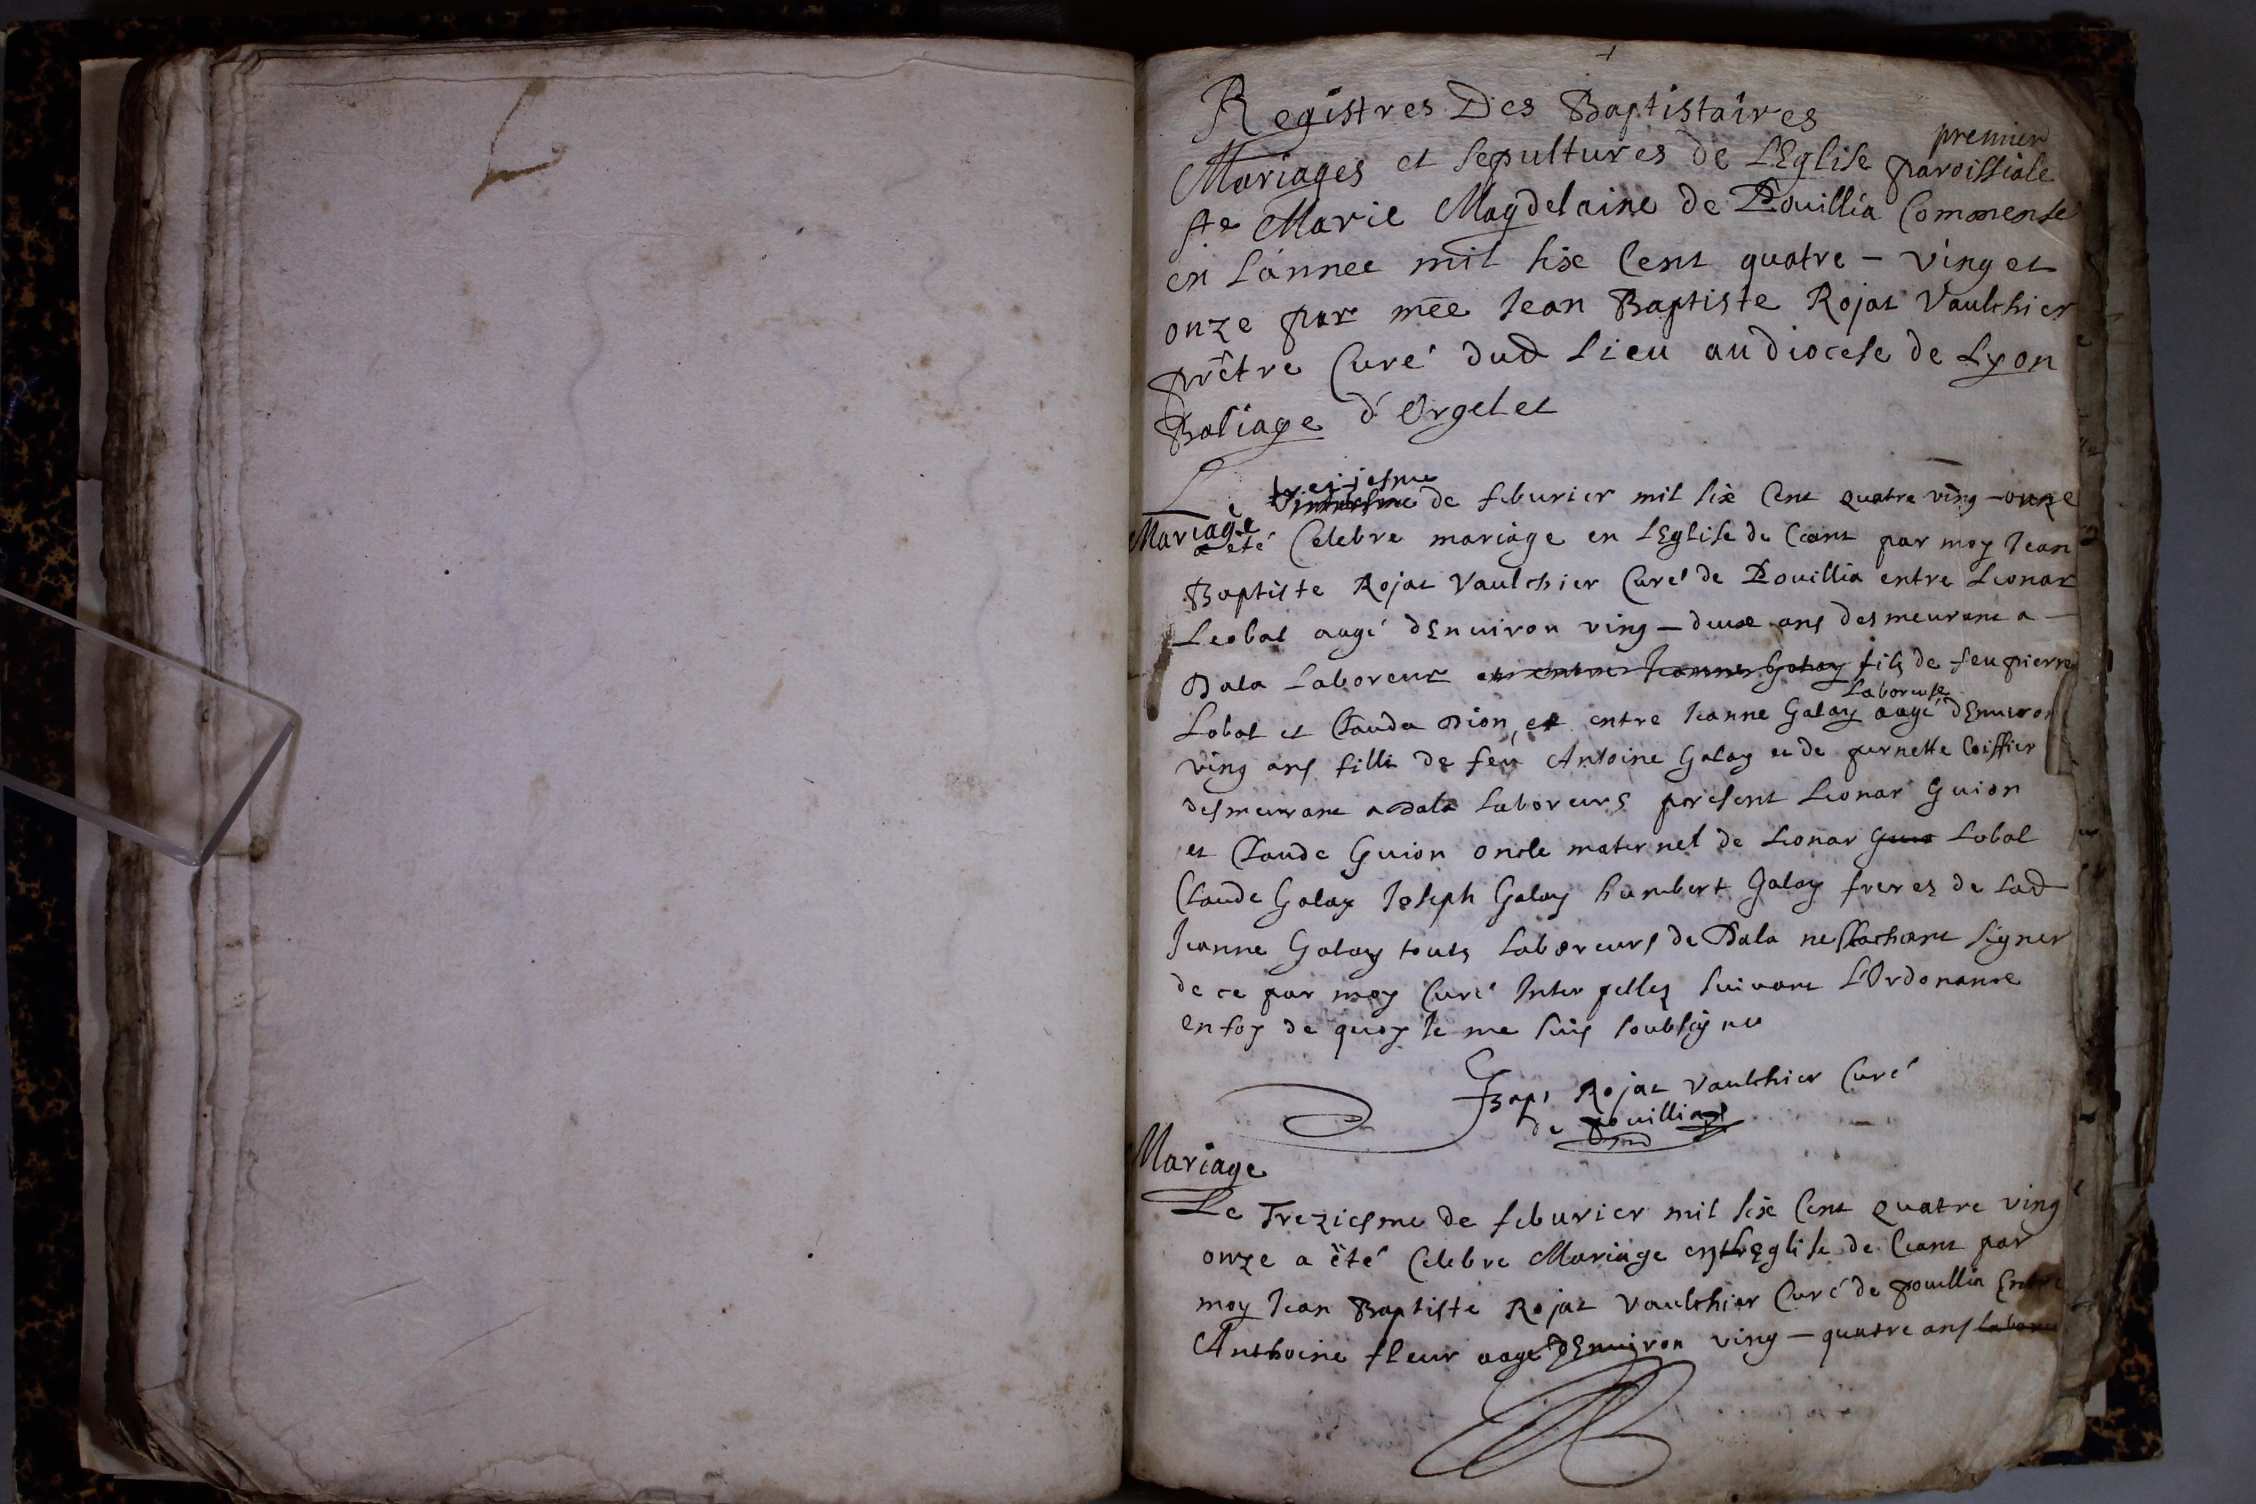 Registres Des Baptistaires
premier
Mariages et sepultures de L'Eglise paroissiale
ste Marie Magdelaine de Pouillia Commensé
en L'année mil six Cent quatre - ving et
onze par mre Jean Baptiste Rojat Vaulchier
prêtre Curé dud Lieu au diocese de Lyon
Baliage d'Orgelet
treijesme
Le de feburier mil six Cent quatre ving - onze
Mariage
a été Celebre mariage en L'Eglise de Ceant par moy Jean
Baptiste Rojat Vaulchier Curé de Pouillia entre Leonar
Lobat aagé d'Enuiron ving - deux ans desmeurant a
Dala Laboreur et entre Jeanne Galay fils de feu pierre
Laboreuse
Lobat et Clauda Dion, et entre Jeanne Galay aagé d'Enuiron
ving ans fille de feu Antoine Galay et de pernette Coiffier
desmeurant a Dala Laboreurs present Leonar Guion
et Claude Guion oncle maternel de Leonar Guio Lobat
Claude Galay Joseph Galay humbert Galay freres de Lad
Jeanne Galay touts Laboreurs de Dala ne sachant signer
de ce par moy Curé Interpellez suivant L'Ordonance
en foy de quoy Je me suis soubsigne
JBapt Rojat Vaulchier Curé
de pouillia
Mariage
Le Treziesme de feburier mil six Cent quatre ving
onze a été Celebre Mariage en L'Eglise de Ceant par
moy Jean Baptiste Rojat Vaulchier Curé de pouillia Entre
Anthoine fleur aagé d'Enuiron ving - quatre ans laboreu